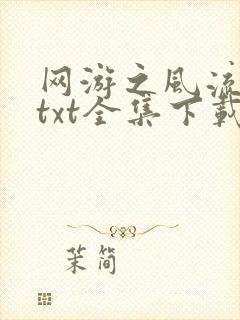 网游之风流
txt全集下载
茉简